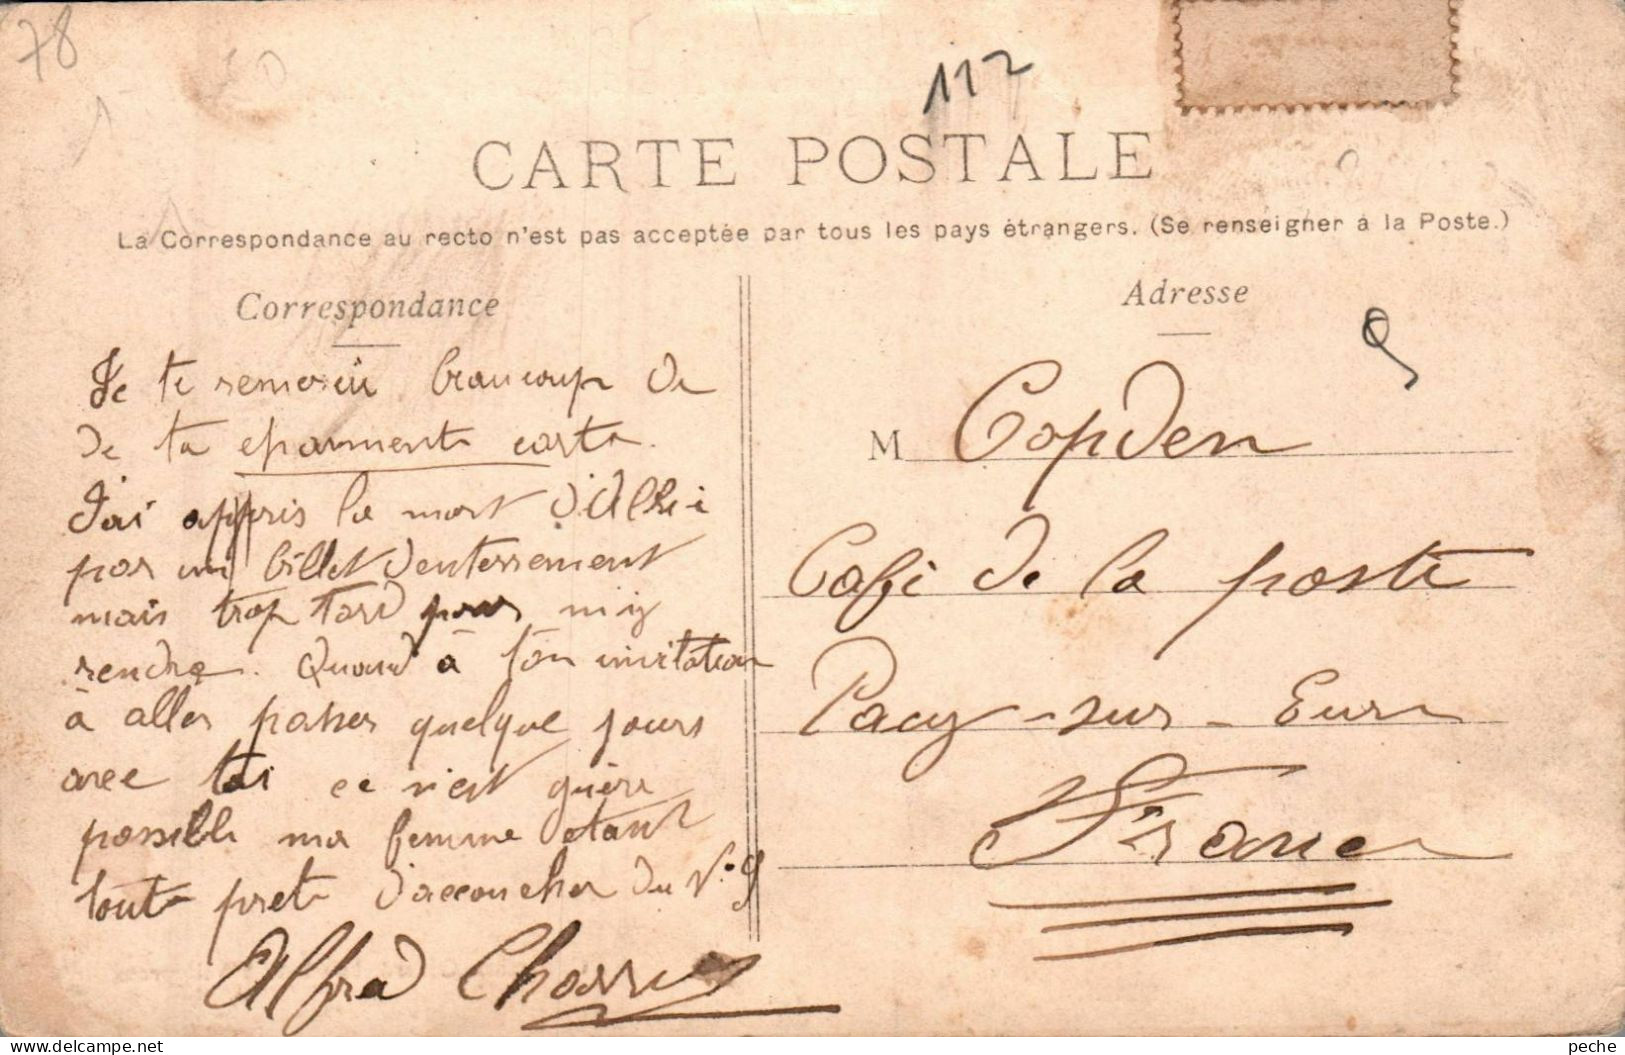 78
112
CARTE POSTALE
La Correspondance au recto n'est pas acceptée par tous les pays étrangers. (Se renseigner à la Poste.)
Correspondance
Je te remercie beaucoup de
de ta eparmente carte.
J'ai appris la mort d'Albei
par un billet d'enterrement
mais trop tard pour m'y
rendre. Quand à ton invitation
à aller passer quelque jours
avec toi ce n'est guère
possible ma femme étant
toute prete d'accoucher du N° 9
Alfred
Adresse
9
M Copden
Café de la poste
Pacy-sur-Eure
France
peche